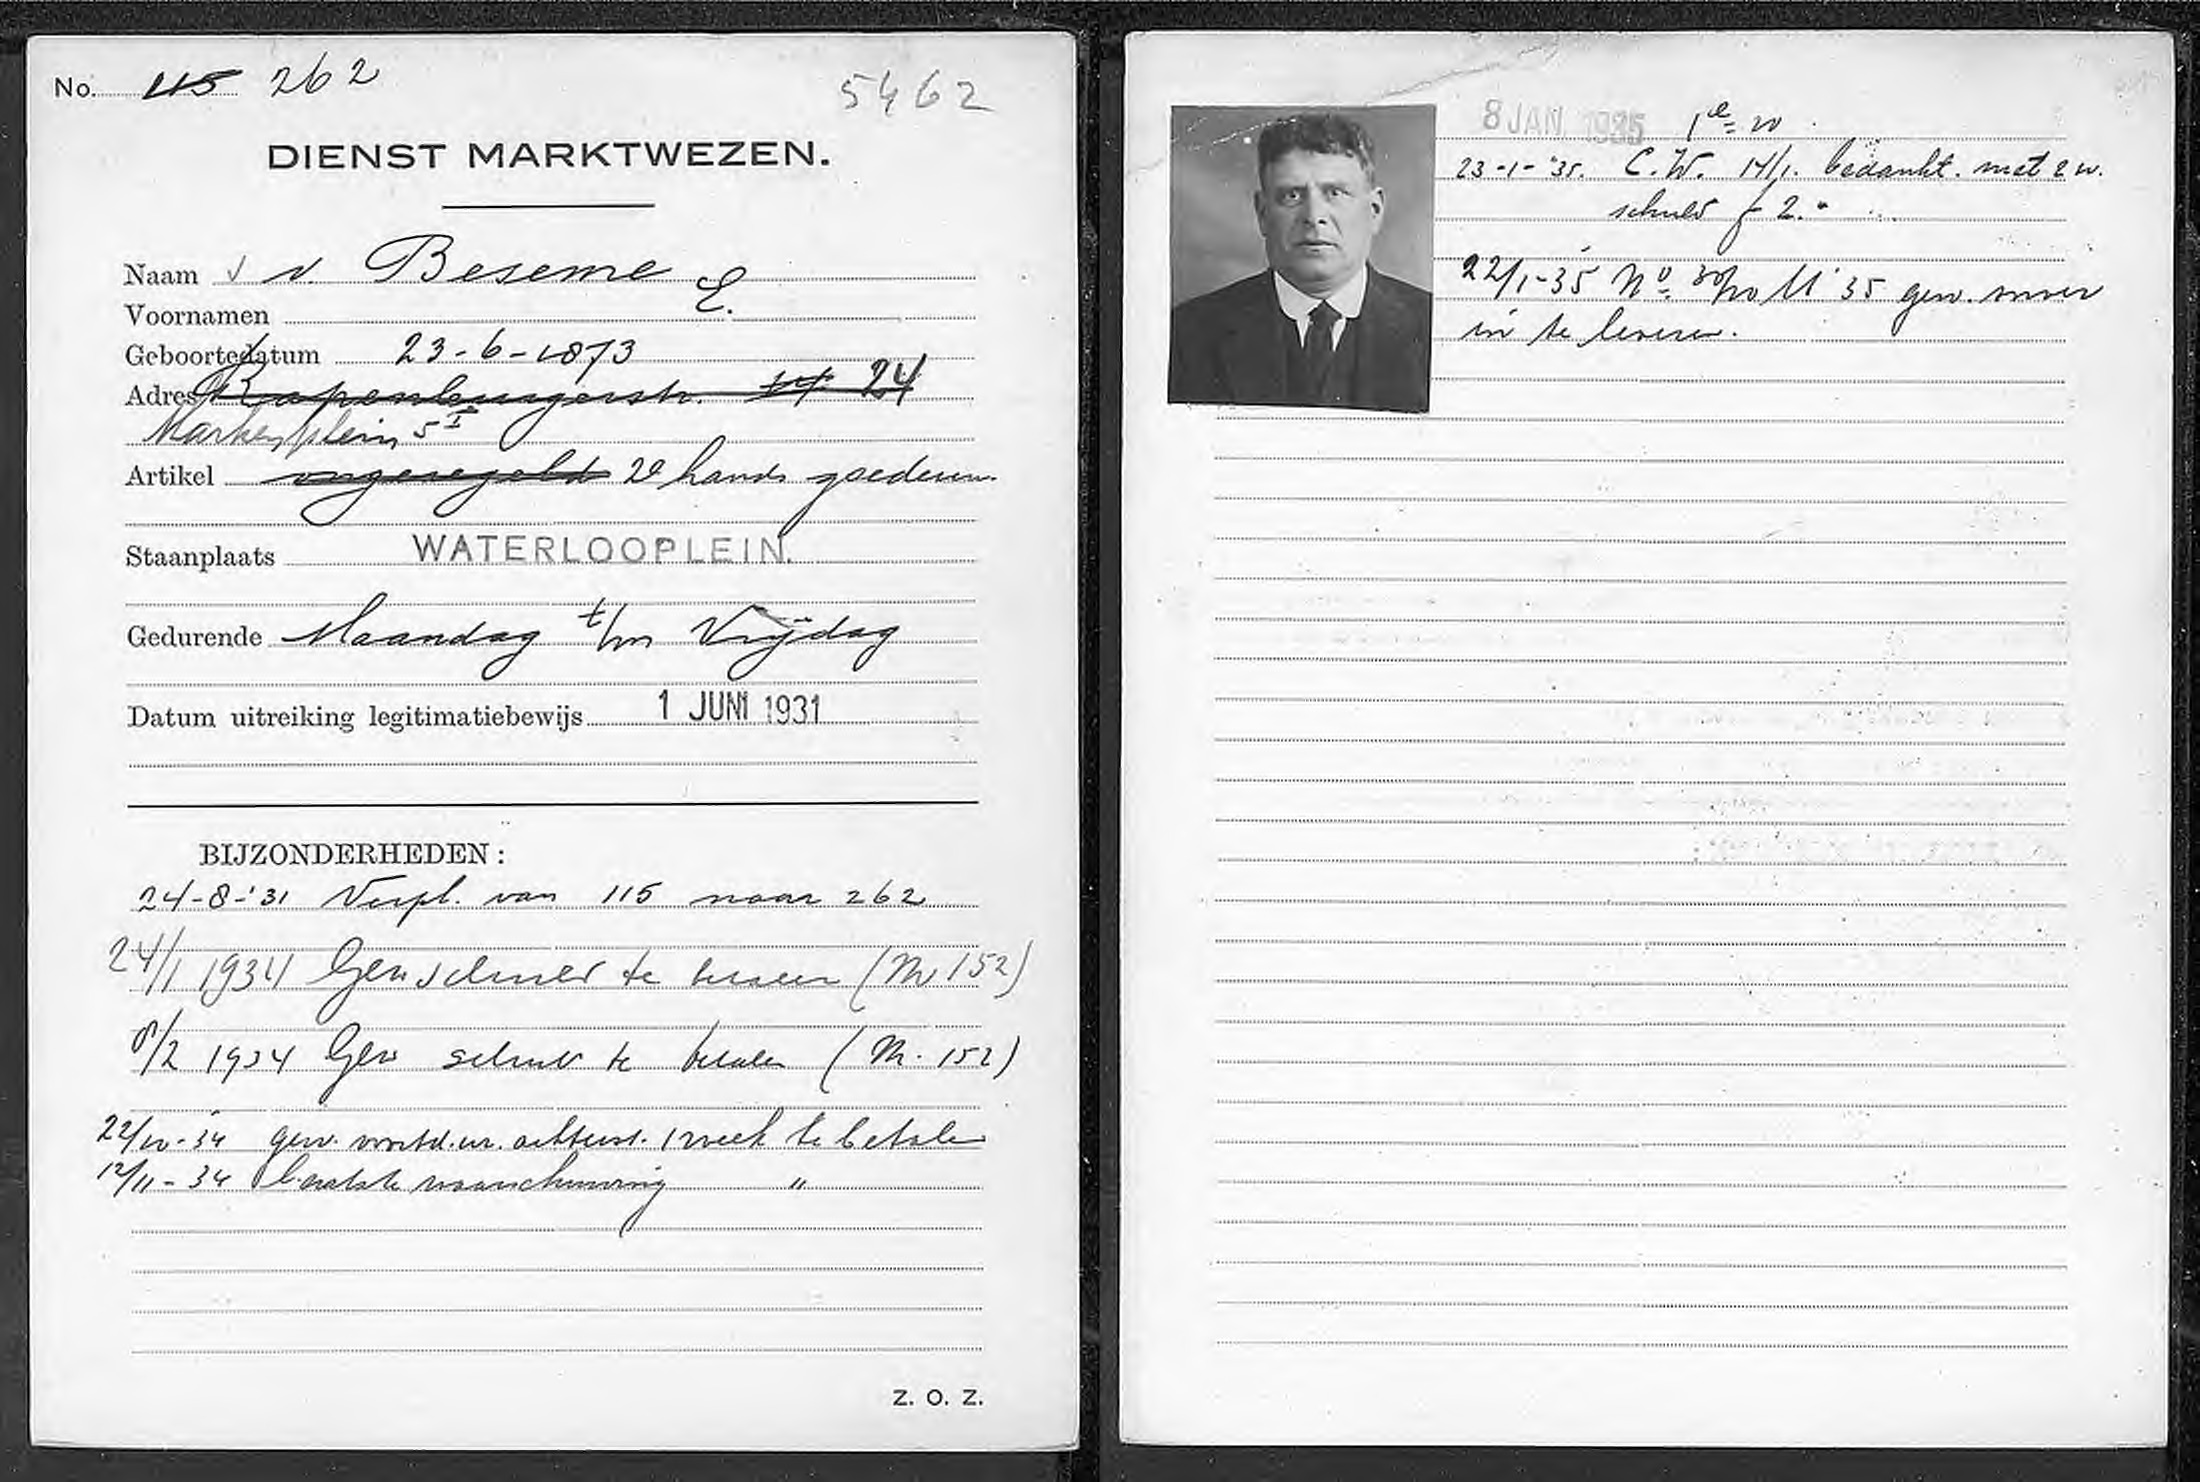 No. 115 262
5462
DIENST MARKTWEZEN.
Naam v. Beseme
Voornamen E.
Geboortedatum 23-6-1873
Adres Rapenburgerstr. 24
Markenplein 5 I
Artikel ongeregeld 2e hands goederen
Staanplaats WATERLOOPLEIN.
Gedurende Maandag t/m Vrijdag
Datum uitreiking legitimatiebewijs 1 JUNI 1931
BIJZONDERHEDEN:
24-8-'31 Verpl. van 115 naar 262
24/1 1934 Gew schuld te betalen (M 152)
8/2 1934 Gew schuld te betalen (M. 152)
22/10-34 gew. achterst. 1 week te betalen
12/11-34 laatste waarschuwing "
Z. O. Z.
8 JAN 1935 1e w
23-1-'35. C.W. 14/1. bedankt. met 2 w.
schuld f 2.-
22/1-35 No. 35 gew.
in te leveren.